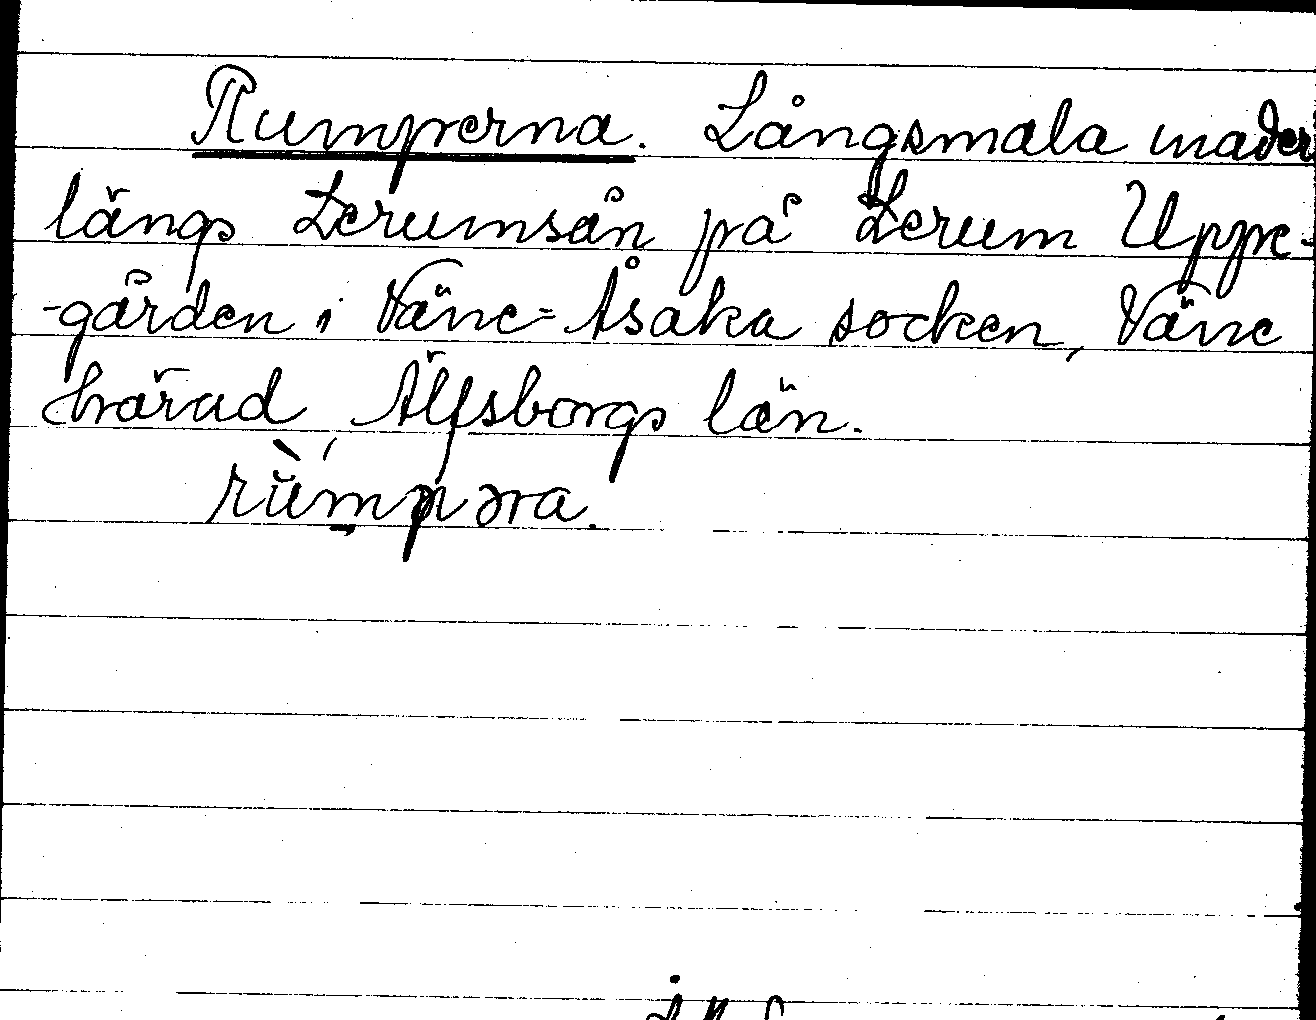 Rumperna. Långsmala mader
längs Lerumsån på Lerum Uppe-
-gården i Väne-Åsaka socken, Väne
härad Älfsborgs län.
rùmpəra.